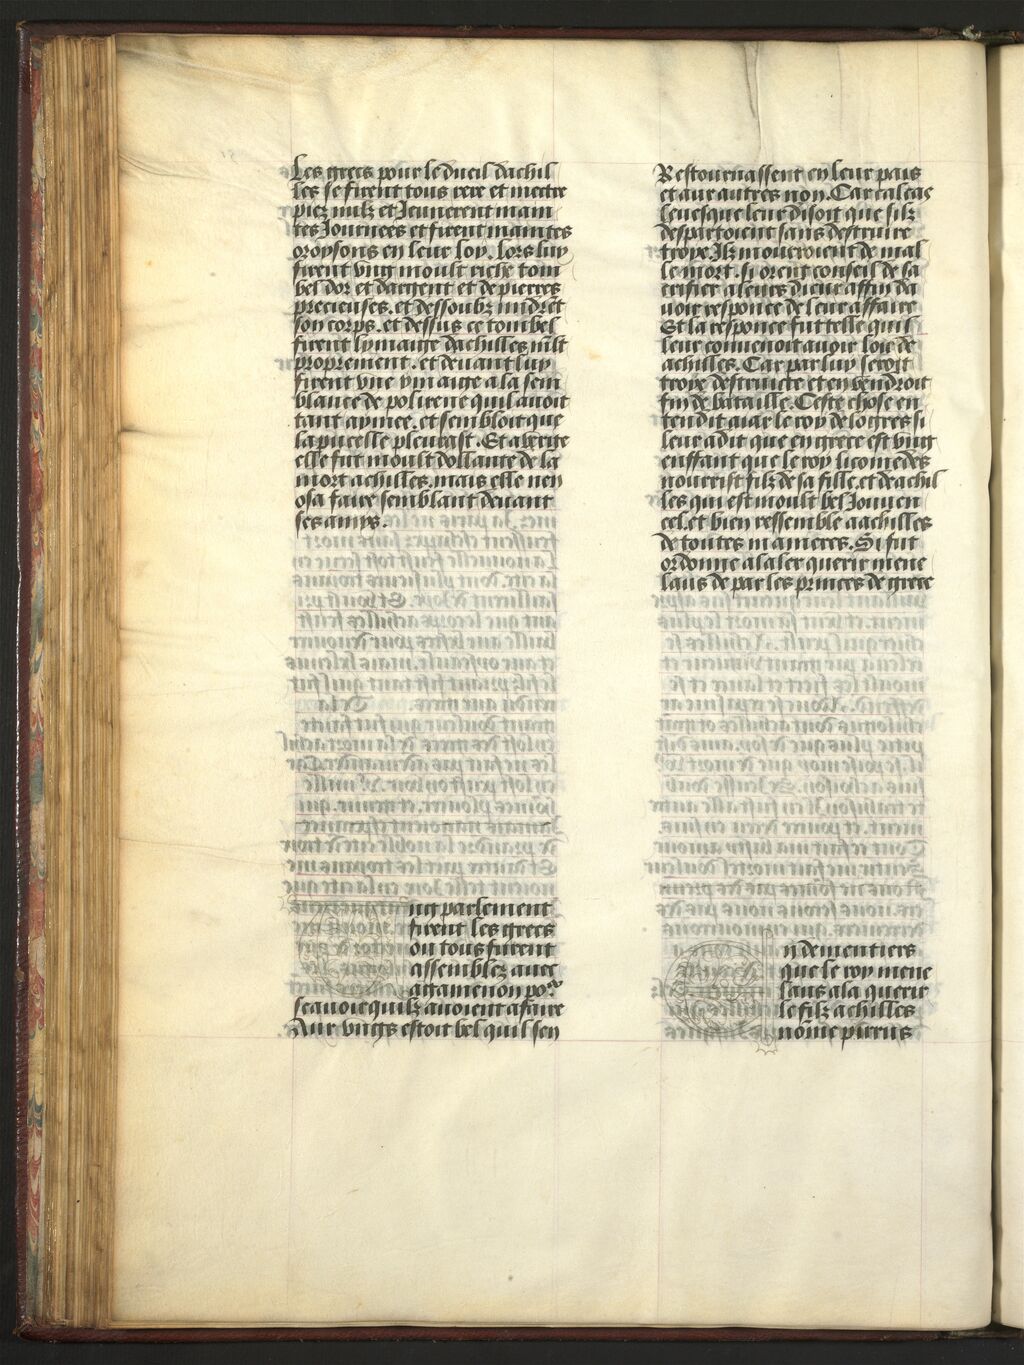 Les grecs pour le dueil dachil
les se firent tous rere et mectre
piez nulz et Jeunerent main
tes Journees et firent maintes
oroysons en leur loy. Lors luy
firent vng moult riche tom
bel dor et dargent et de pierres
precieuses. et dessoubz midrēt
son corps. et dessus ce tombel
firent lymaige dachilles mlt
proprement. et devant luy
firent vne ymaige a la sem
blance de polixene quil avoit
tant aymee. et sembloit que
la pucelle pleurast. Et a verite
elle fut moult dollante de la
mort achilles. mais elle nen
osa faire semblant devant
ses amys.
ng parlement
firent les grecs
ou tous furent
assemblez avec
agamenon por
scavoir quilz avoient a faire
Aux vngs estoit bel quil sen
Restournassent en leur pais
et aux autres non. Car calcas
levesque leur disoit que silz
despartoient sans destruire
troye. Ilz mourroient de mal
le mort. si orent conseil de sa
crifier a leurs dieux affin da
voir responce de leur affaire
Et la responce fut telle quil
leur convenoit avoir loir de
achilles. Car par luy seroit
troye destruicte et en vendroit
fin de bataille. Ceste chose en
tendit aiax le roy de logres si
leur a dit que en grece est vng
enffant que le roy licomedes
nourrist filz de sa fille. et dachil
les qui est moult bel Jouven
cel. et bien ressemble a achilles
de toutes manieres. Si fut
ordonne a laler querir mene
laus de par les princes de grece
n dementiers
que le roy mene
laus ala querir
le filz achilles
nōme pirrus